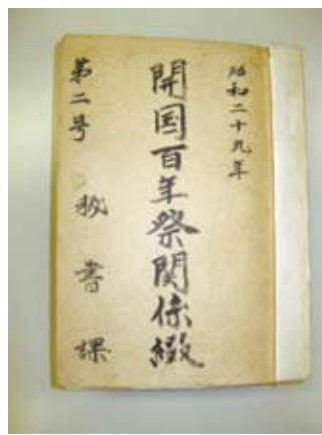 昭和二十九年
開国百年祭関係綴
第二号 秘書課